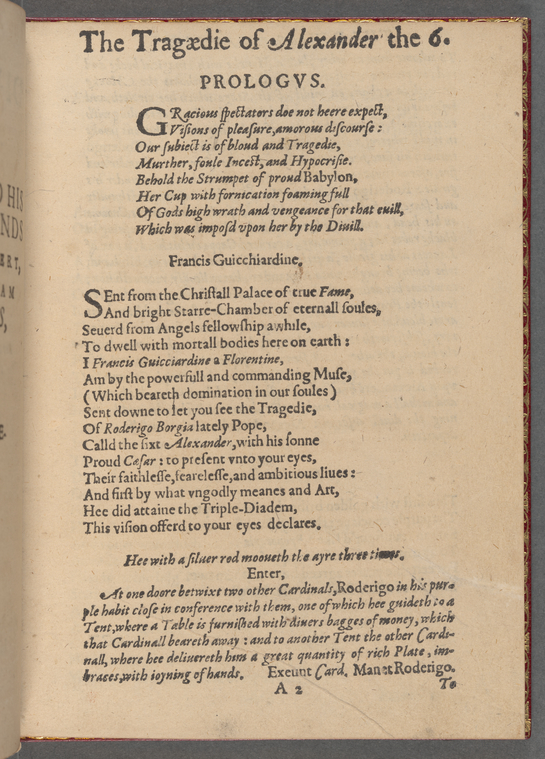 O HIS
NDS
ERT,
AM
S,
E.
The Tragædie of Alexander the 6.
PROLOGVS.
GRacious ſpectators doe not heere expect,
Viſions of pleaſure, amorous diſcourſe:
Our ſubiect is of bloud and Tragedie,
Murther, foule Inceſt, and Hypocriſie.
Behold the Strumpet of proud Babylon,
Her Cup with fornication foaming full
Of Gods high wrath and vengeance for that euill,
Which was impoſd vpon her by the Diuill.
Francis Guicchiardine,
SEnt from the Chriſtall Palace of true Fame,
And bright Starre-Chamber of eternall ſoules,
Seuerd from Angels fellowſhip awhile,
To dwell with mortall bodies here on earth:
I Francis Guicciardine a Florentine,
Am by the powerfull and commanding Muſe,
(Which beareth domination in our ſoules)
Sent downe to let you ſee the Tragedie,
Of Roderigo Borgia lately Pope,
Calld the ſixt Alexander, with his ſonne
Proud Cæſar: to preſent vnto your eyes,
Their faithleſſe, feareleſſe, and ambitious liues:
And firſt by what vngodly meanes and Art,
Hee did attaine the Triple-Diadem,
This viſion offerd to your eyes declares.
Hee with a ſiluer rod mooueth the ayre three times.
Enter,
At one doore betwixt two other Cardinals, Roderigo in his pur-
ple habit cloſe in conference with them, one of which hee guideth to a
Tent, where a Table is furniſhed with diuers bagges of money, which
that Cardinall beareth away: and to another Tent the other Cardi-
nall, where hee deliuereth him a great quantity of rich Plate, im-
braces, with ioyning of hands. Exeunt Card. Manet Roderigo.
A 2 To